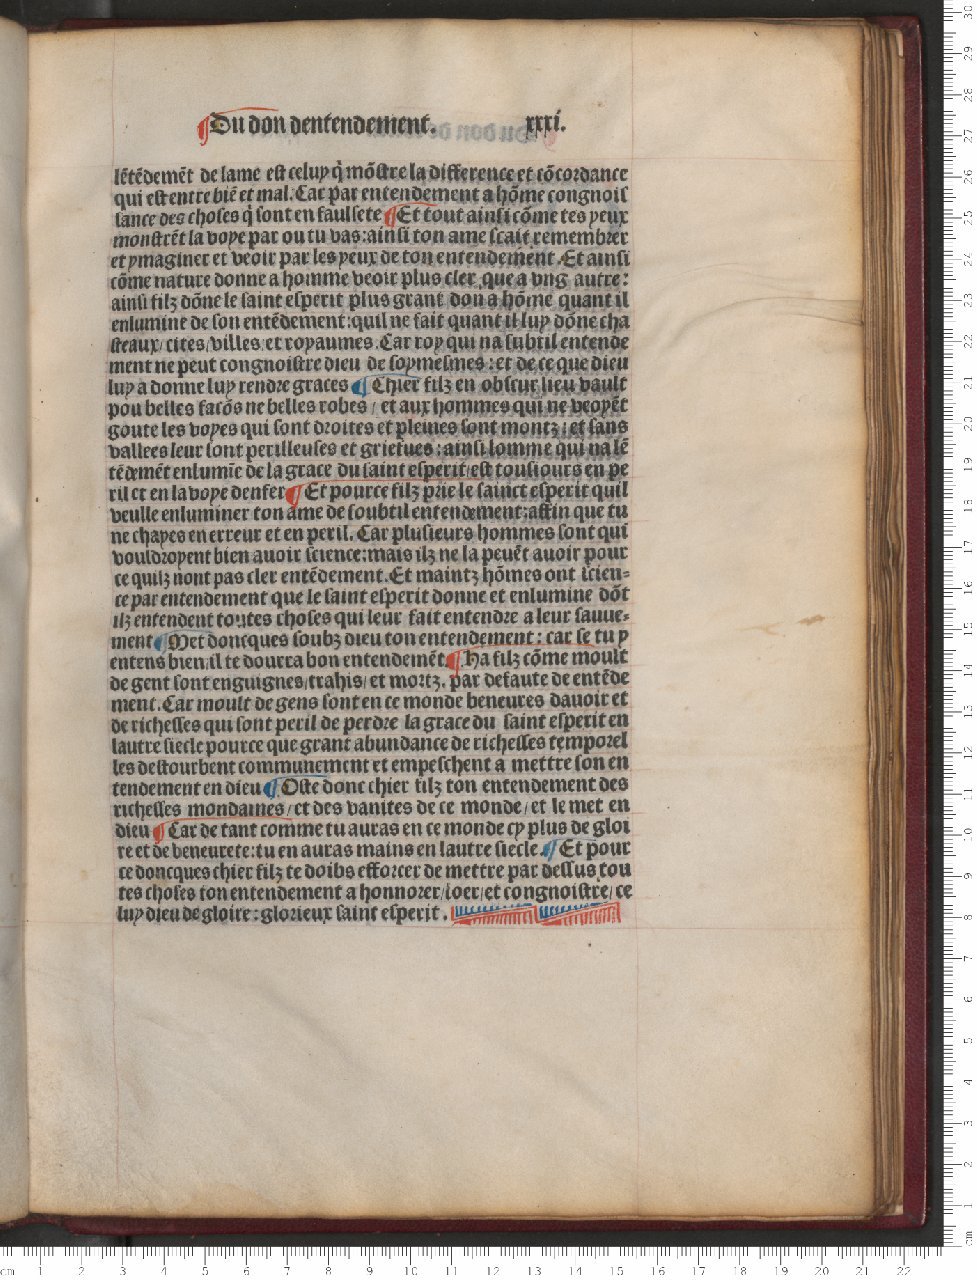 ¶Du don dentendement. xxxi.
lētēdemēt de lame est celuy q̇ mōstre la difference et cōcordance
qui est entre biē et mal. Car par entendement a hōme congnois
sance des choses q̇ sont en faulsete ¶Et tout ainsi cōme tes yeux
monstrēt la voye par ou tu vas: ainsi ton ame scait remembrer
et ymaginer et veoir par les yeux de ton entendement. Et ainsi
cōme nature donne a homme veoir plus cler que a vng autre:
ainsi filz dōne le saint esperit plus grant don a hōme quant il
enlumine de son entēdement: quil ne fait quant il luy dōne cha
steaux/ cites/ villes/ et royaumes. Car roy qui na subtil entende
ment ne peut congnoistre dieu de soymesmes: et de ce que dieu
luy a donne luy rendre graces ¶Chier filz en obscur lieu vault
pou belles facōs ne belles robes/ et aux hommes qui ne veoyēt
goute les voyes qui sont droites et pleines sont montz/ et sans
vallees leur sont perilleuses et griefues: ainsi lomme qui na lē
tēdemēt enlumīe de la grace du saint esperit/ est tousiours en pe
ril et en la voye denfer ¶Et pource filz prie le sainct esperit quil
veulle enluminer ton ame de soubtil entendement: affin que tu
ne chayes en erreur et en peril. Car plusieurs hommes sont qui
vouldroyent bien auoir science: mais ilz ne la peuēt auoir pour
ce quilz nont pas cler entēdement. Et maintz hōmes ont scien-
ce par entendement que le saint esperit donne et enlumine dōt
ilz entendent toutes choses qui leur fait entendre a leur sauue-
ment ¶Met doncques soubz dieu ton entendement: car se tu y
entens bien/ il te dourra bon entendemēt. ¶Ha filz cōme moult
de gent sont enguignes/ trahis/ et mortz. par defaute de entēde
ment. Car moult de gens sont en ce monde beneures dauoir et
de richesses qui sont peril de perdre la grace du saint esperit en
lautre siecle pource que grant abundance de richesses temporel
les destourbent communement et empeschent a mettre son en
tendement en dieu ¶Oste donc chier filz ton entendement des
richesses mondaines/ et des vanites de ce monde/ et le met en
dieu ¶Car de tant comme tu auras en ce monde cy plus de gloi
re et de beneurete: tu en auras mains en lautre siecle. ¶Et pour
ce doncques chier filz te doibs efforcer de mettre par dessus tou
tes choses ton entendement a honnorer/ loer/ et congnoistre/ ce
luy dieu de gloire: glorieux saint esperit.